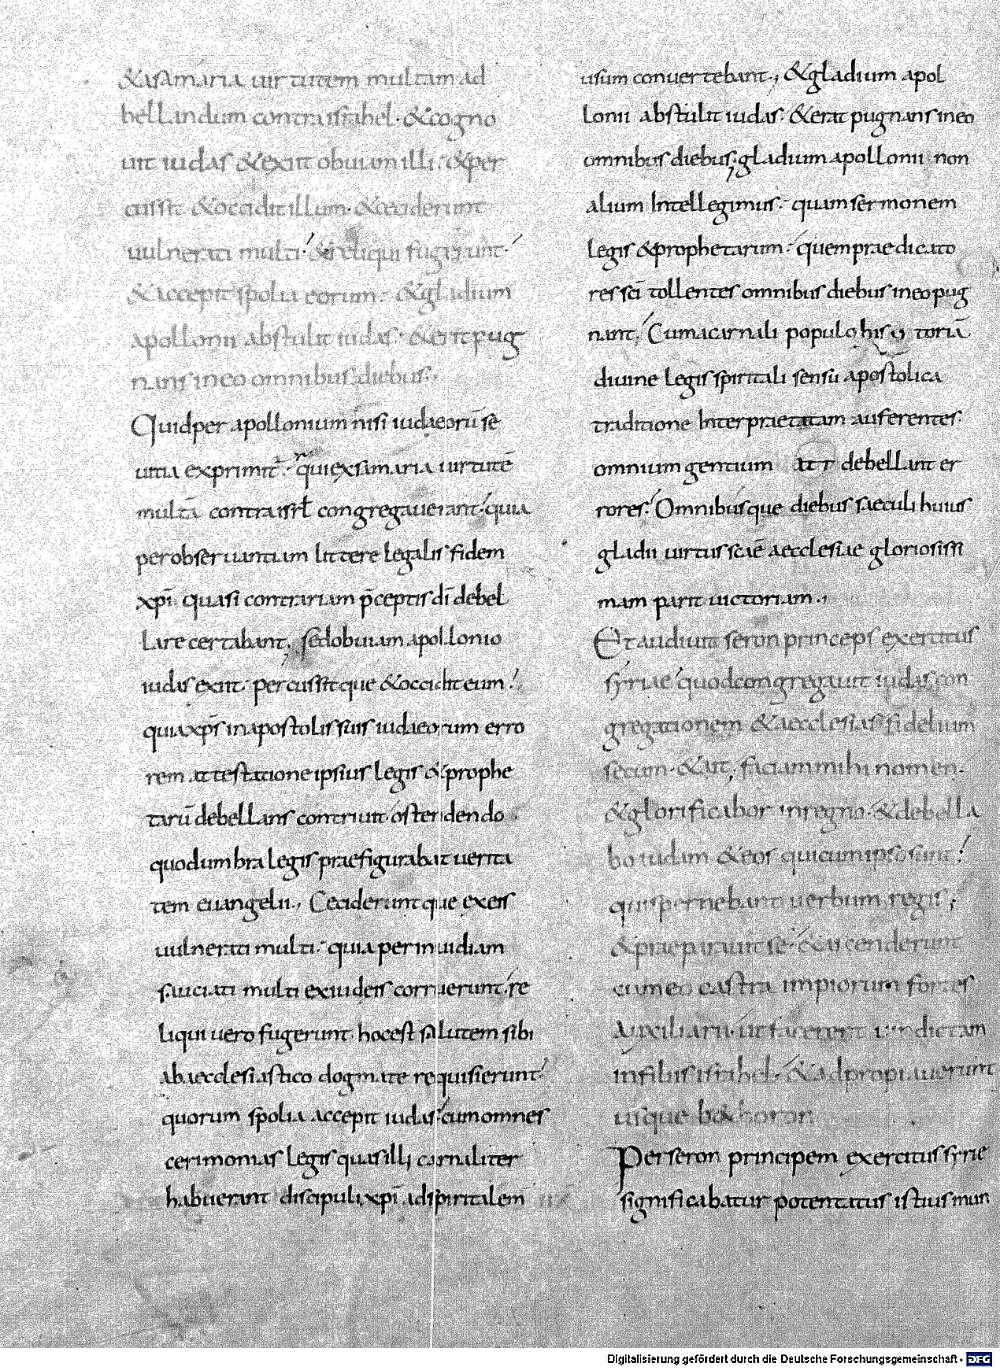 &asamaria uirtutem multam ad
bellandum contra israhel. &cogno
uit iudas &exiit obuiam illi. &per
cussit &occidit illum. &ceciderunt
uulnerati multi. &reliqui fugerunt.
&accepit spolia eorum. &gladium
apollonii abstulit iudas. &erat pug
nans in eo omnibus diebus.
Quid per apollonium nisi iudaeorū se
uitia exprimit̄. qui exsamaria uirtutē
multā contra isrł congregauerant. quia
per obseruantiam littere legalis fidem
xp̄i quasi contrariam p̄ceptis dī debel
lare certabant; sed obuiam apollonio
iudas exiit. percussitque &occidit eum.
quia xp̄s in apostolis suis iudaeorum erro
rem attestatione ipsius legis &prophe
tarū debellans contriuit. ostendendo
quod umbra legis praefigurabat uerita
tem euangelii. Ceciderunt que exeis
uulnerati multi. quia per inuidiam
sauciati multi exiudeis corruerunt. re
liqui uero fugerunt. hoc est salutem sibi
ab aecclesiastico dogmate requisierunt.
quorum spolia accepit iudas. cum omnes
cerimonias legis quas illi carnaliter
habuerant discipuli xp̄i ad spiritalem
usum conuertebant; &gladium apol
lonii abstulit iudas. &erat pugnans in eo
omnibus diebus; gladium apollonii non
alium Intellegimus. quam sermonem
legis &prophetarum. quem praedicato
res scī tollentes omnibus diebus in eo pug
nant. Cum a carnali populo his toriā
diuine legis spiritali sensu apostolica
traditione Interpraetatam auferentes.
omnium gentium debellant er
rores. Omnibusque diebus saeculi huius
gladii uirtus scāe aecclesiae gloriosissi
mam parit uictoriam.
Et audiuit seron princeps exercitus
syriae quod congregauit iudas con
gregationem &aecclesias fidelium
secum. &ait, faciam mihi nomen.
&glorificabor in regno. &debella
bo iudam &eos qui cum ipso sunt.
qui spernebant uerbum regis;
&praeparauit se. &ascenderunt
cum eo castra impiorum fortes
auxiliarii. ut facerent uindictam
in filiis israhel. &adpropiauerunt
usque b&horon
Per seron principem exercitus syrie
significabatur potentatus istius mun